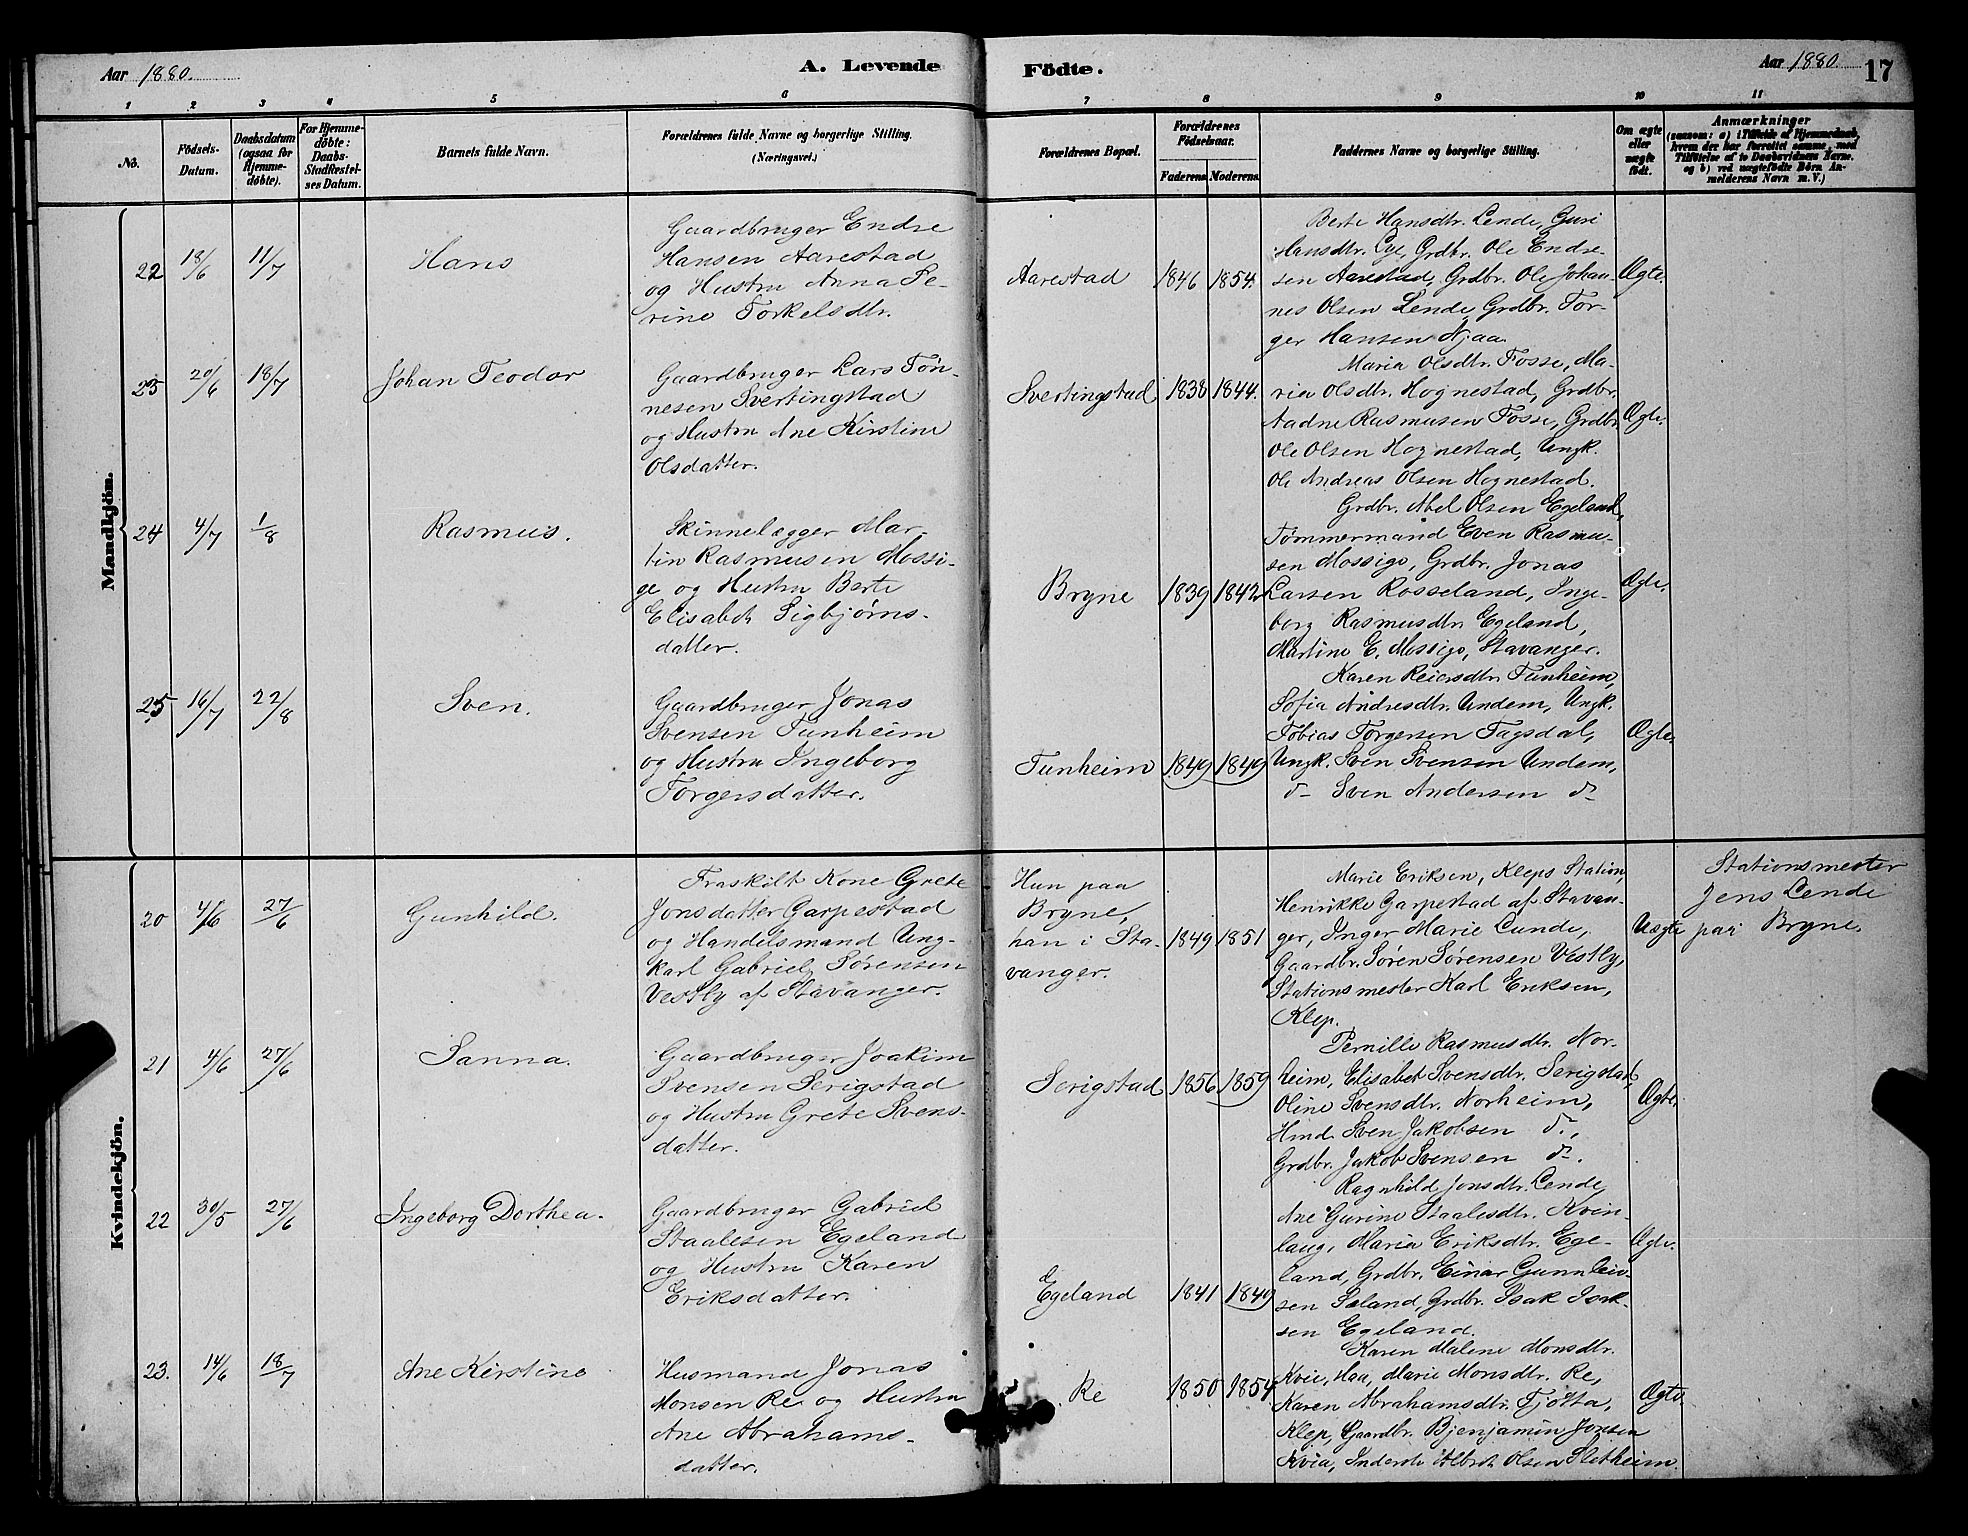 Aar 1880.
A. Levende Födte.
Aar 1880.
17
1 2 3 4 5 6 7 8 9 10 11
No.
Födsels-Datum.
Daabsdatum (ogsaa for Hjemmedöbte).
For Hjemmedöbte: Daabs-Stadfæstelses Datum.
Barnets fulde Navn.
Forældrenes fulde Navne og borgerlige Stilling.
(Næringsvei.)
Forældrenes Bopæl.
Forældrenes Födselsaar.
Faderens. Moderens.
Faddernes Navne og borgerlige Stilling.
Om ægte eller uægte födt.
Anmærkninger
(saasom: a) i Tilfælde af Hjemmedaab, hvem der har forrettet samme, med Tilföielse af to Daabsvidners Navne, og b) ved uægtefödte Börn Anmelderens Navn m. V.)
Mandkjön.
22 18/6 11/7
Hans
Gaardbruger Endre
Hansen Aarestad
og Hustru Anna Se-
rine Torkelsdtr.
Aarestad 1846 1854.
Berte Hansdtr. Lende, Guri
Hansdtr. Lye, Grdbr. Ole Endre-
sen Aarestad, Grdbr. Ole Johan-
nes Olsen Lende, Grdbr. Tor-
ger Hansen Njaa.
Ægte.
23 20/6 18/7
Johan Teodor
Gaardbruger Lars Tøn-
nesen Svertingstad
og Hustru Ane Kirstine
Olsdatter.
Svertingstad 1838 1844.
Maria Olsdtr. Fosse, Ma-
ria Olsdtr. Hognestad, Grdbr.
Aadne Rasmusen Fosse, Grdbr.
Ole Olsen Hognestad, Ungk.
Ole Andreas Olsen Hognestad.
Ægte.
24 4/7 1/8
Rasmus.
Skinnelægger Mar-
tin Rasmusen Mossi-
ge og Hustru Berte
Elisabet Sigbjørns-
datter.
Bryne 1839 1842
Grdbr. Abel Olsen Egeland,
Tømmermand Even Rasmu-
sen Mossige, Grdbr. Jonas
Larsen Rosseland, Inge-
borg Rasmusdtr. Egeland,
Martine E. Mossige, Stavanger.
Ægte.
25 16/7 22/8
Sven.
Gaardbruger Jonas
Svensen Tunheim
og Hustru Ingeborg
Torgersdatter.
Tunheim 1849 1849
Karen Reiersdtr. Tunheim,
Sofia Andresdtr. Undem, Ungk.
Tobias Torgersen Fagsdal,
Ungk. Sven Svensen Undem,
do Sven Andersen do
Ægte.
Kvindekjön.
20 4/6 27/6
Gunhild.
Fraskilt Kone Grete
Jonsdatter Garpestad
og Handelsmand Ung-
karl Gabriel Sørensen
Vestly af Stavanger.
Hun paa
Bryne,
han i Sta-
vanger.
1849 1851
Marie Eriksen, Kleps Station,
Henrikke Garpestad af Stavan-
ger, Inger Marie Lunde,
Gaardbr. Søren Sørensen Vestly,
Stationsmester Karl Eriksen,
Klep.
Uægte
Stationsmester
Jens Lende
paa Bryne.
21 4/6 27/6
Sanna.
Gaardbruger Joakim
Svensen Serigstad
og Hustru Grete Svens-
datter.
Serigstad 1856 1859
Pernille Rasmusdtr. Nor-
heim, Elisabet Svensdtr. Serigstad,
Oline Svensdtr. Norheim,
Hmd. Sven Jakobsen do,
Grdbr. Jakob Svensen do.
Ægte.
22 30/5 27/6
Ingeborg Dorthea.
Gaardbruger Gabriel
Staalesen Egeland
og Hustru Karen
Eriksdatter.
Egeland 1841 1849
Ragnhild Jonsdtr. Lende,
Ane Gurine Staalesdtr. Kvin-
laug, Maria Eriksdtr. Ege-
land, Grdbr. Einar Gunnleiv-
sen Sæland, Grdbr. Isak Isak-
sen Egeland.
Ægte.
23. 14/6 18/7
Ane Kirstine
Husmand Jonas
Monsen Re og Hustru
Ane Abrahams-
datter.
Re 1850 1854
Karen Malene Monsdtr.
Kvie, Haa, Marie Monsdtr. Re,
Karen Abrahamsdtr. Fjøtta,
Klep, Gaardbr. Bjenjamin Jonsen
Kvia, Inderste Albret Olsen Sletheim.
Ægte.